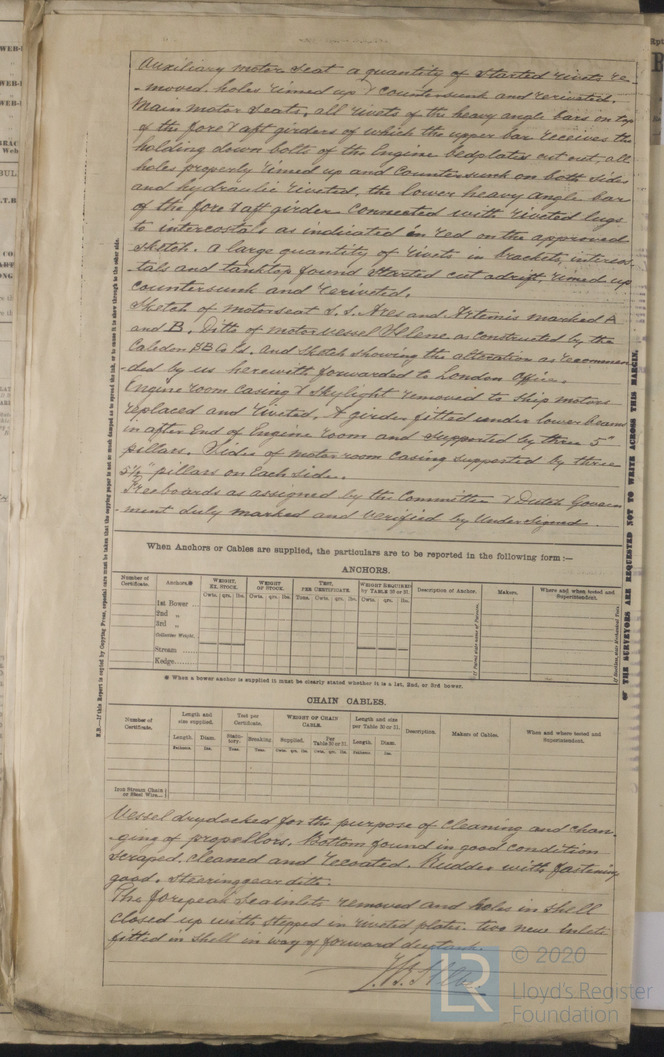 Auxiliary motor seat a quantity of started rivets re-
-moved, holes rimed up & countersunk and reriveted.
Main motor seats, all rivets of the heavy angle bars on top
of the fore & aft girders of which the upper bar receives the
holding down bolts of the Engine bedplates cut out, all
holes properly rimed up and countersunk on both sides
and hydraulic riveted, the lower heavy angle bar
of the fore & aft girder connected with riveted lugs
to intercostals as indicated in red on the approved
sketch. A large quantity of rivets in brackets, intercos-
tals and tanktop found started cut adrift, rimed up
countersunk and reriveted.
Sketch of motorseat S.S. Ares and Artemis marked A
and B. Ditto of motorvessel as constructed by the
Caledon SB Co Ld. and sketch showing the alteration as recommen-
ded by us herewith forwarded to London Office.
Engine room casing & skylight removed to ship motors
replaced and riveted. A girder fitted under lower beams
in after end of Engine room and supported by three 5"
pillars. Sides of motor room casing supported by three
5½" pillars on each side.
Freeboards as assigned by the Committee & Dutch Govern-
ment duly marked and verified by undersigned.
When Anchors or Cables are supplied, the particulars are to be reported in the following form :—
ANCHORS.
Number of Certificate. Anchors.* WEIGHT, EX. STOCK. WEIGHT OF STOCK. TEST, PER CERTIFICATE. WEIGHT REQUIRED BY TABLE 30 or 31. Description of Anchor. Makers. Where and when tested and Superintendent.
Cwts. qrs. lbs. Cwts. qrs. lbs. Tons. Cwts. qrs. lbs. Cwts. qrs. lbs.
1st Bower
2nd „
3rd „
Collective Weight.
Stream
Kedge
* When a bower anchor is supplied it must be clearly stated whether it is a 1st, 2nd, or 3rd bower.
CHAIN CABLES.
Number of Certificate. Length and size supplied. Test per Certificate. WEIGHT OF CHAIN CABLE. Length and size per Table 30 or 31. Description. Makers of Cables. Where and when tested and Superintendent.
Length. Diam. Statutory. Breaking. Supplied. Per Table 30 or 31. Length. Diam.
Fathoms. Ins. Tons. Tons. Cwts. qrs. lbs. Cwts. qrs. lbs. Fathoms. Ins.
Iron Stream Chain or Steel Wire
Vessel drydocked for the purpose of cleaning and chan-
-ging of propellors. Bottom found in good condition
scraped, cleaned and recoated. Rudder with fastening
good. Steering gear ditto.
The forepeak sea inlets removed and holes in shell
closed up with stepped in riveted plates. two new inlets
fitted in shell in way of forward deeptank.
N.B.—If this Report is copied by Copying Press, especial care must be taken that the copying paper is not so much damped as to spread the ink, or to cause it to show through to the other side.
THE SURVEYORS ARE REQUESTED NOT TO WRITE ACROSS THIS MARGIN.
LR
© 2020
Lloyd's Register
Foundation